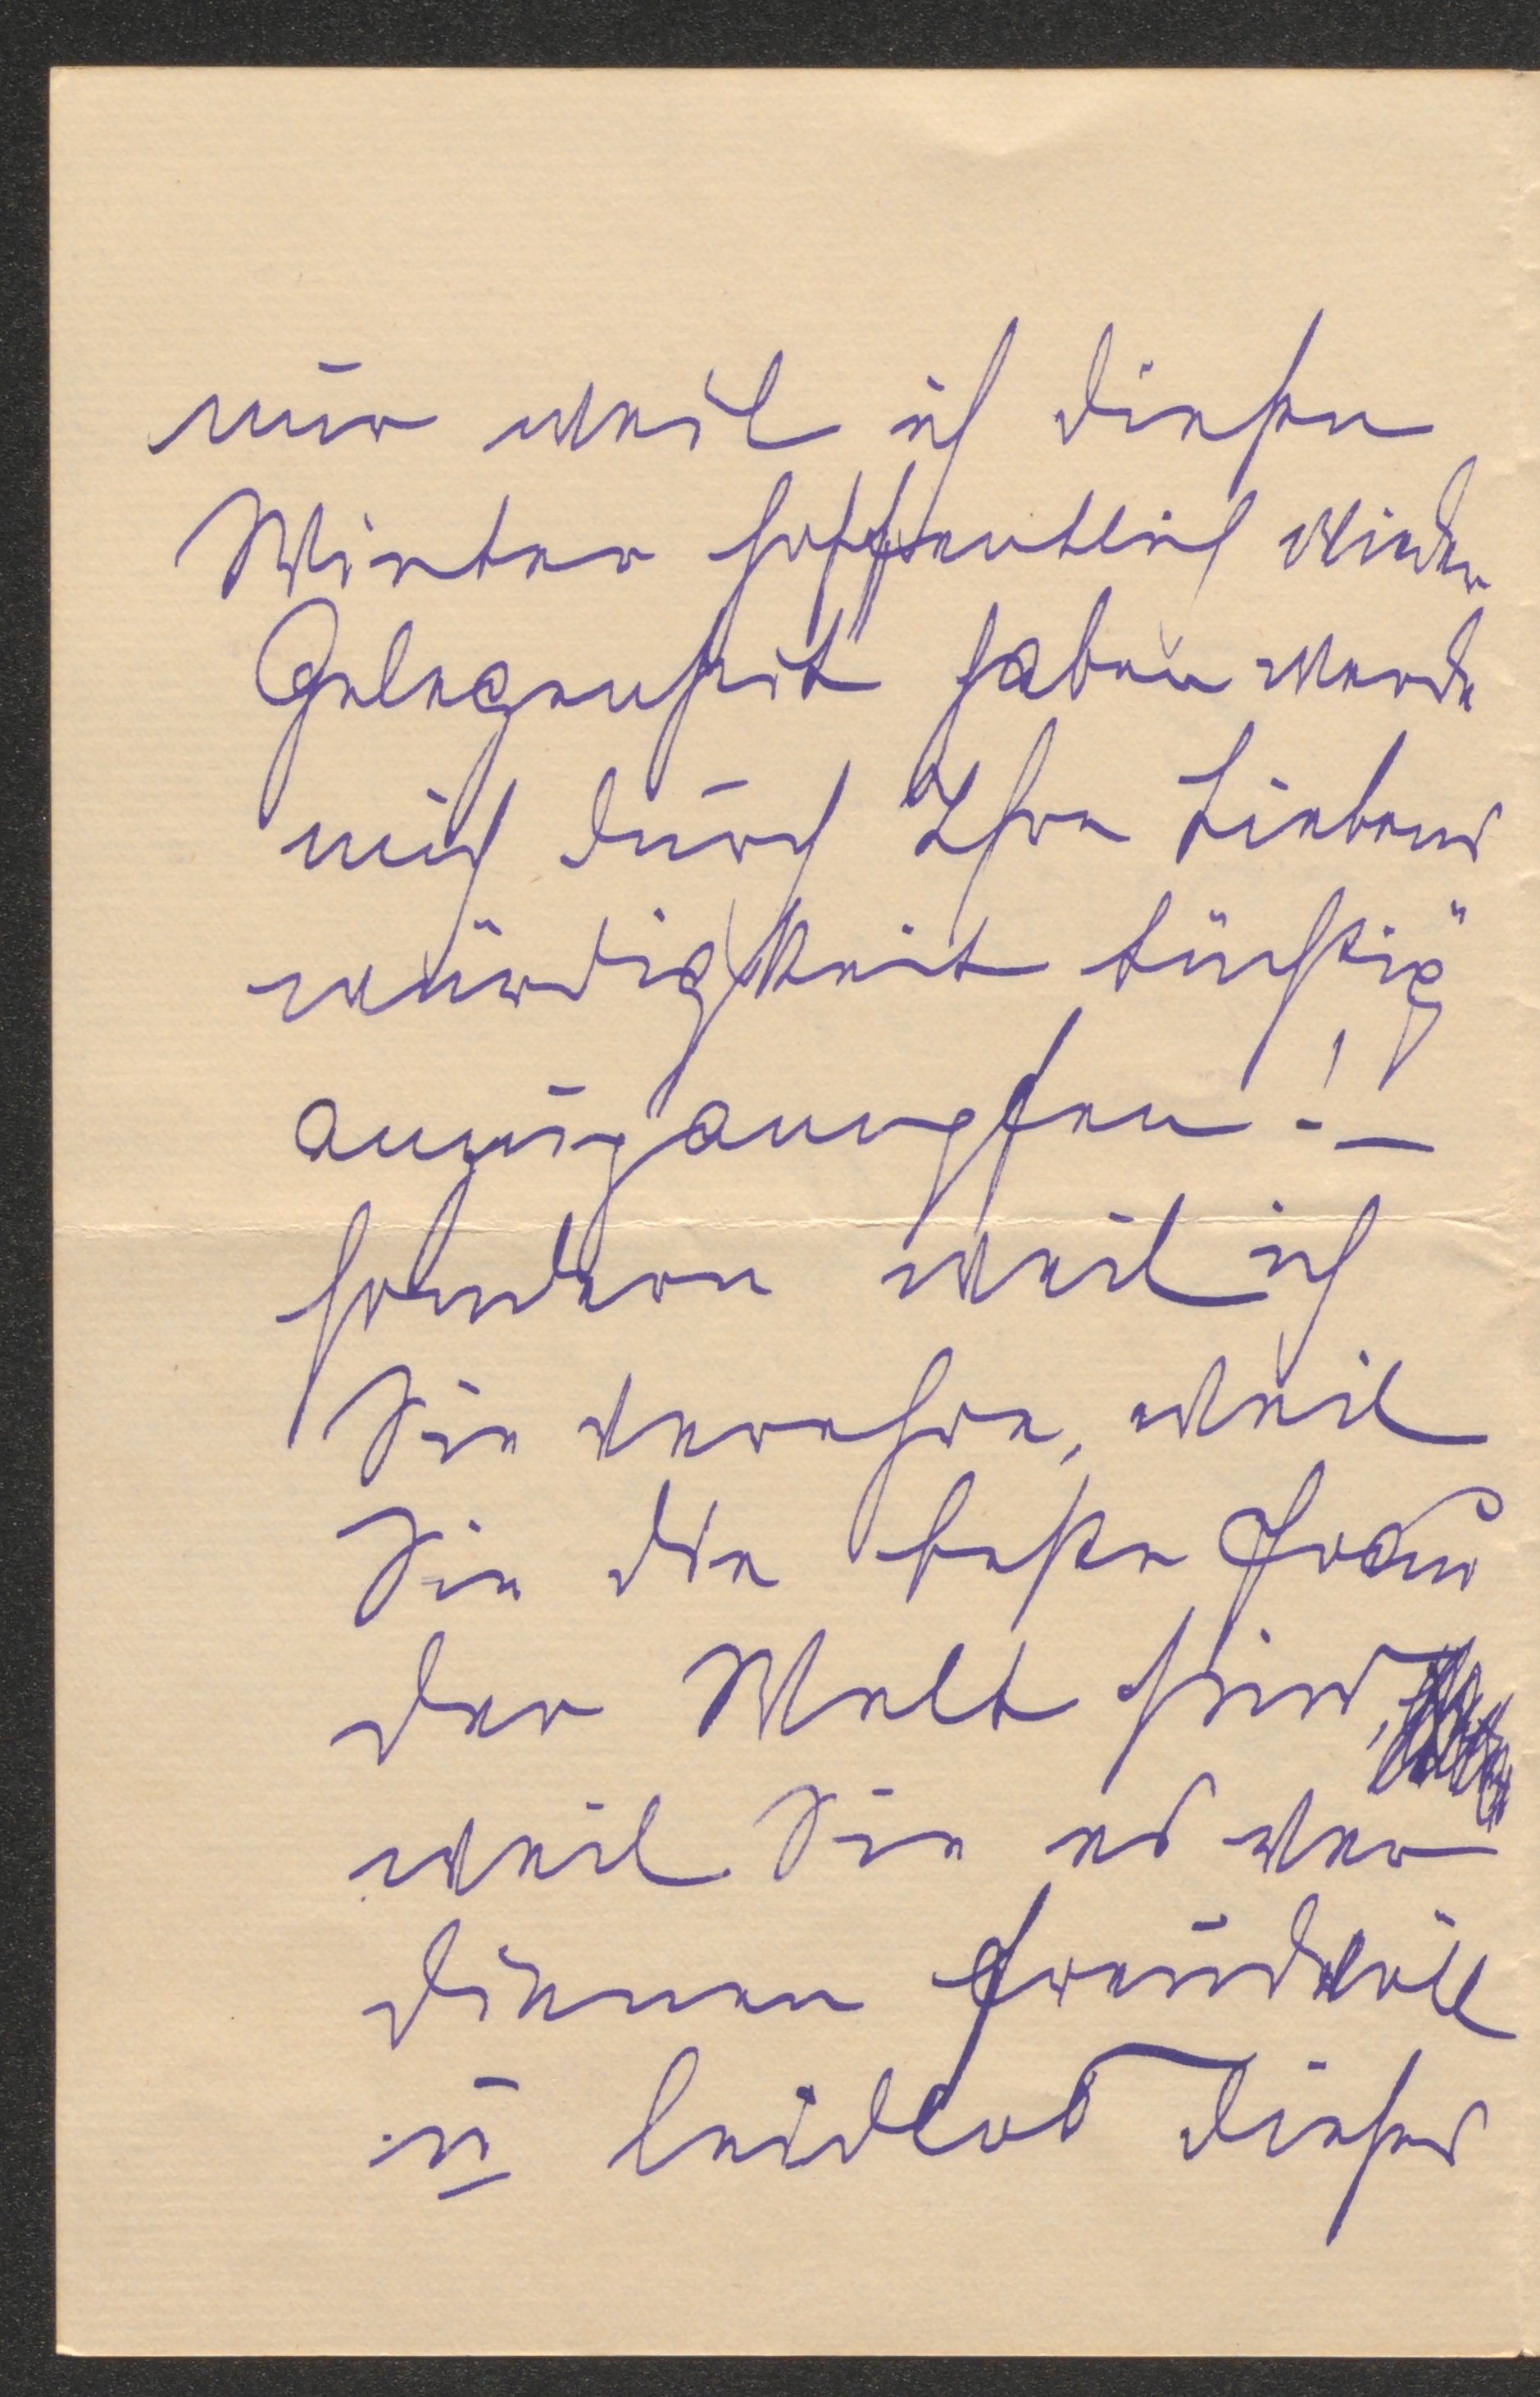 nur weil ich diesen
Winter hoffentlich wieder
Gelegenheit haben werde
mich durch Ihre Liebens
würdigkeit tüchtig
anzugampfen! –
sondern weil ich
Sie verehre, weil
Sie die beste Frau
der Welt sind,
weil Sie es ver
dienen freudvoll
u leidlos dieses